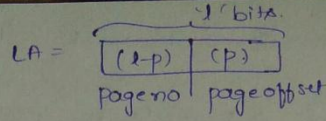 'l' bits.
LA = (l-p) (p)
page no page offset